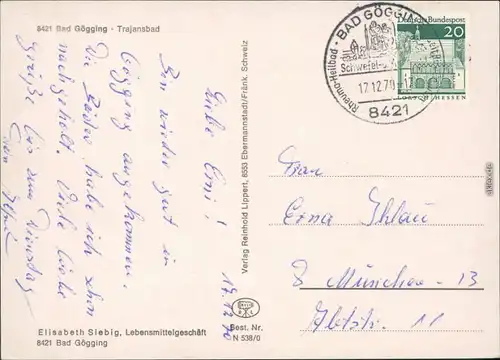 8421 Bad Gögging - Trajansbad
17.12.70
Liebe Erni!
Bin wieder gut in
Gögging angekommen.
Die Bäder habe ich schon
nachgeholt. Viele liebe
Grüße bis zum Dienstag
Elisabeth Siebig, Lebensmittelgeschäft
8421 Bad Gögging
Verlag Reinhold Lippert, 8553 Ebermannstadt/Fränk. Schweiz
Best. Nr.
N 538/0
BAD GÖGGING
Rheuma-Heilbad
Schwefel-
17.12.70
8421
Deutsche Bundespost
20
LORSCH/HESSEN
Frau
Erna Ihlau
8 München - 13
11